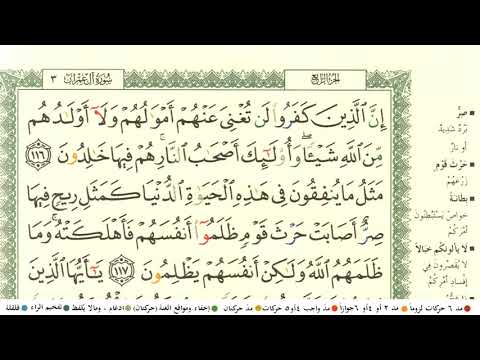 سُورَةُ آلِ عِمْرَانَ ٣
الجُزْءُ الرَّابِعُ
إِنَّ الَّذِينَ كَفَرُوا لَن تُغْنِيَ عَنْهُمْ أَمْوَٰلُهُمْ وَلَآ أَوْلَٰدُهُم
مِّنَ اللَّهِ شَيْـًٔا ۖ وَأُولَٰٓئِكَ أَصْحَٰبُ النَّارِ ۚ هُمْ فِيهَا خَٰلِدُونَ ١١٦
مَثَلُ مَا يُنفِقُونَ فِي هَٰذِهِ الْحَيَوٰةِ الدُّنْيَا كَمَثَلِ رِيحٍ فِيهَا
صِرٌّ أَصَابَتْ حَرْثَ قَوْمٍ ظَلَمُوٓا أَنفُسَهُمْ فَأَهْلَكَتْهُ ۚ وَمَا
ظَلَمَهُمُ اللَّهُ وَلَٰكِنْ أَنفُسَهُمْ يَظْلِمُونَ ١١٧ يَٰٓأَيُّهَا الَّذِينَ
صِرٌّ
بَرْدٌ شَدِيدٌ
أو نارٌ
حَرْثَ قَوْمٍ
زَرْعَهُمْ
بِطَانَةً
خواصّ يستبطنون
أمركم
لا يألونكم خبالاً
لا يقصّرون في
إفساد أمركم
مد ٦ حركات لزوماً
مد ٢ أو ٤ أو ٦ جوازاً
مد واجب ٤ أو ٥ حركات
مد حركتان
إخفاء، ومواقع الغنة (حركتان)
ادغام، وما لا يُلفظ
تفخيم الراء
قلقلة